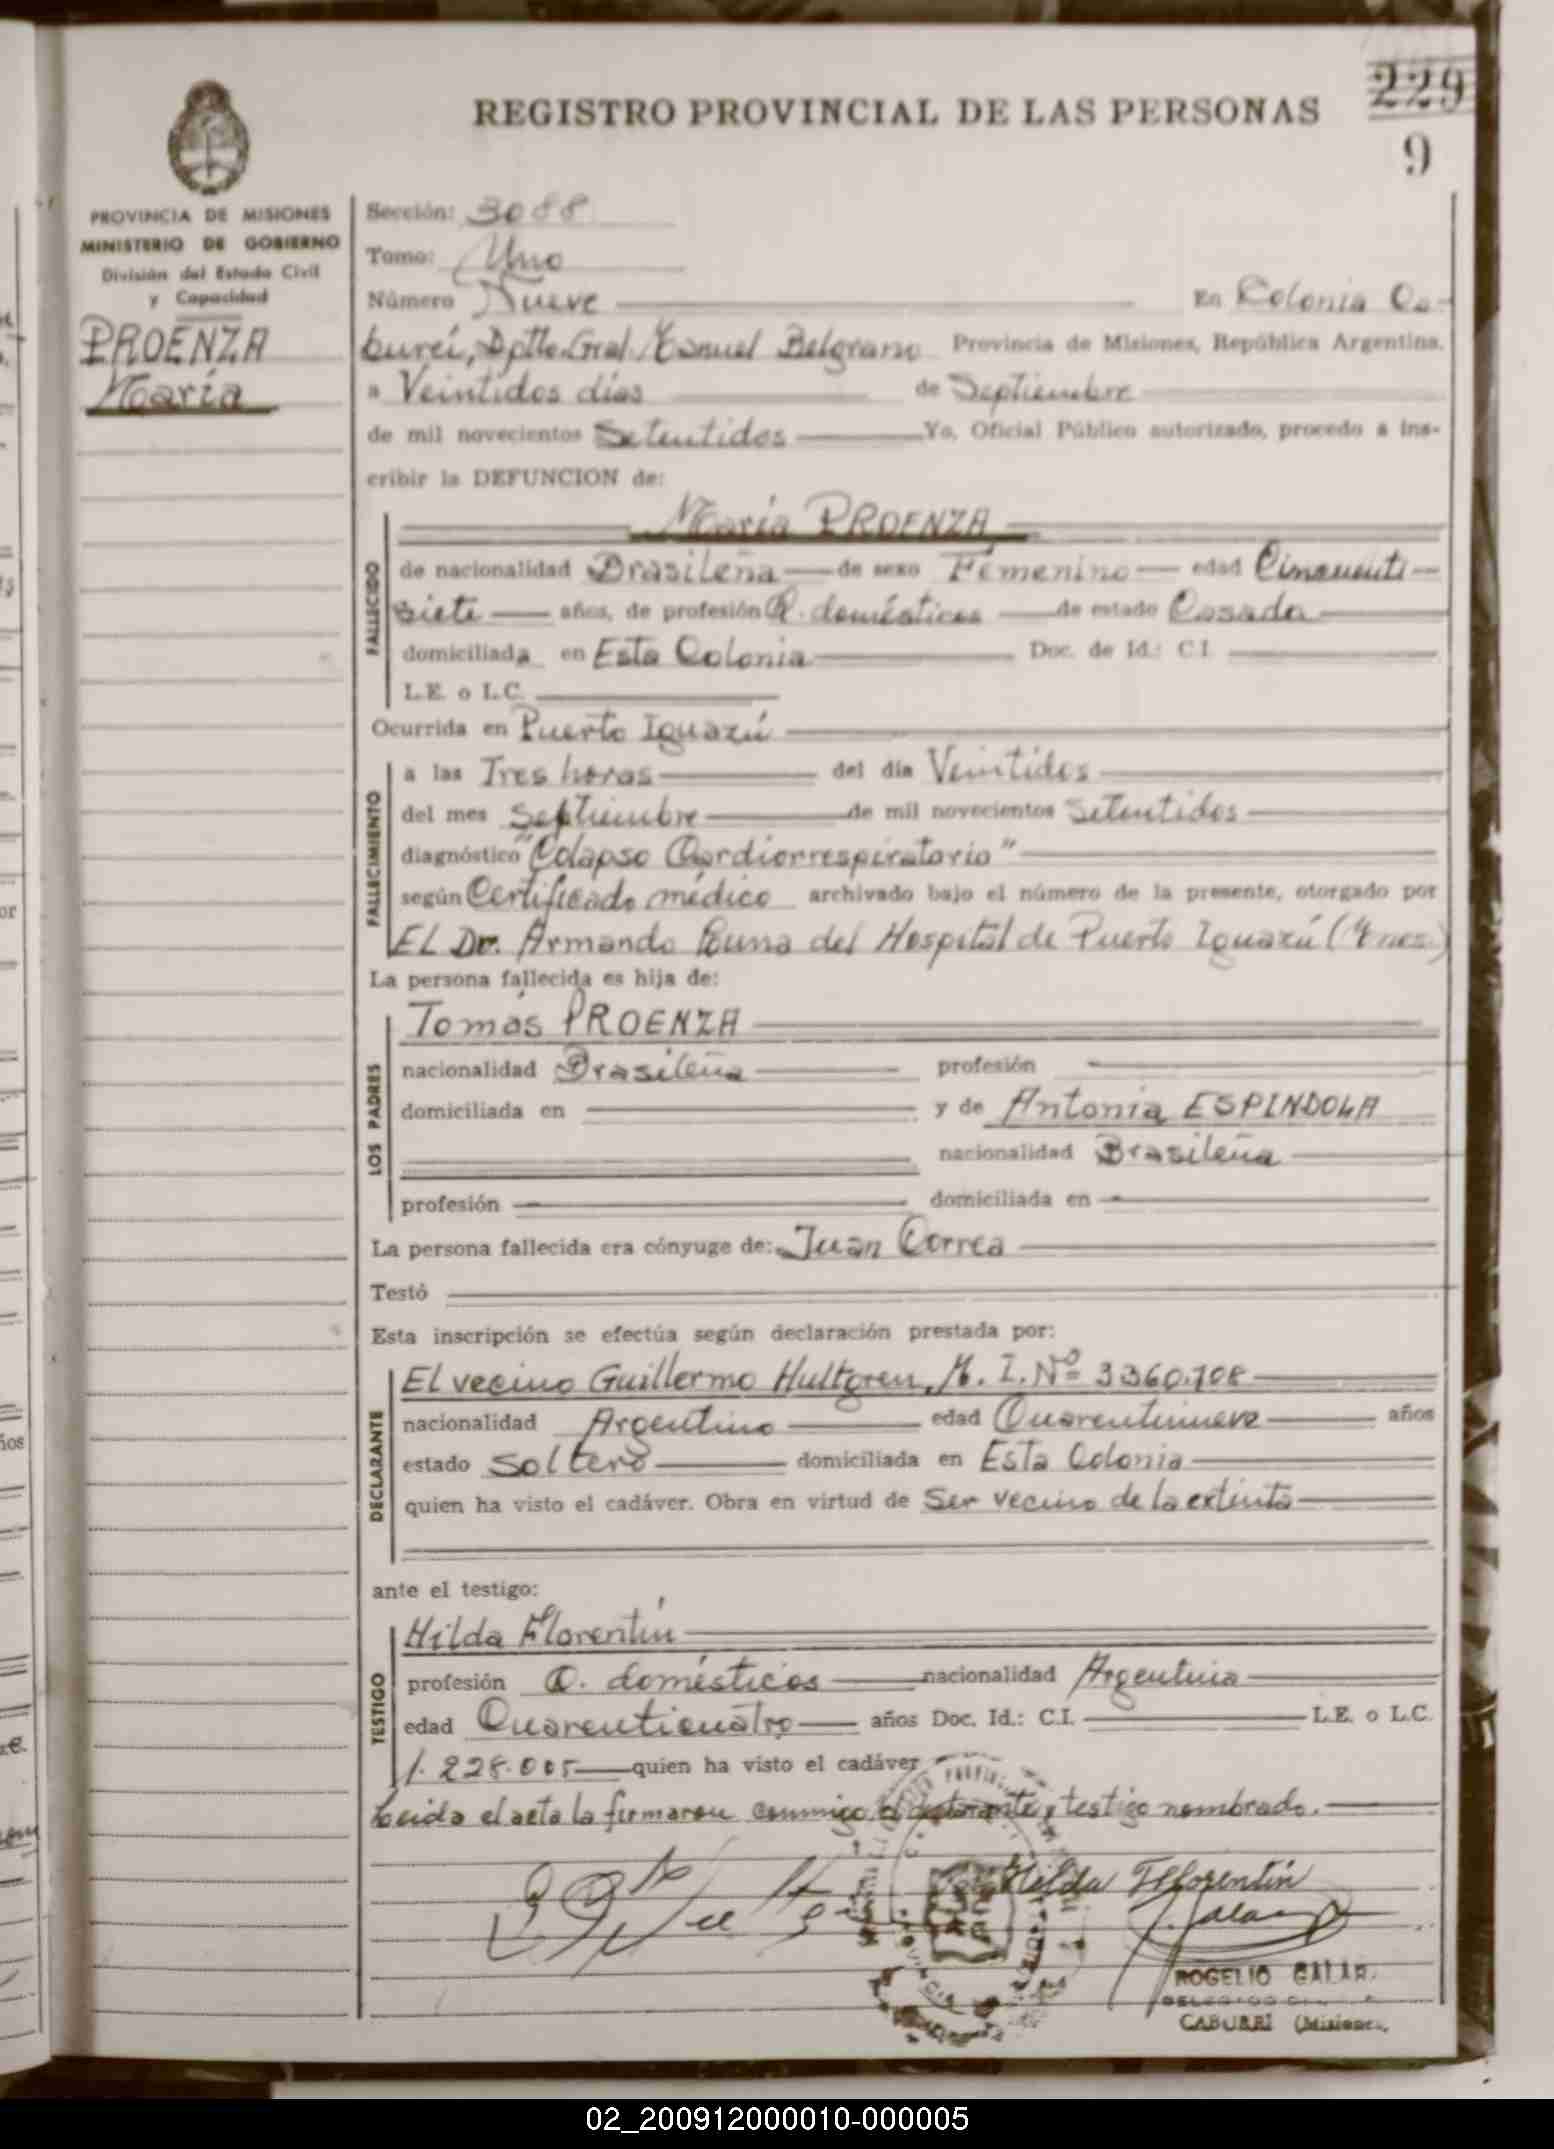 229
REGISTRO PROVINCIAL DE LAS PERSONAS
9
PROVINCIA DE MISIONES
MINISTERIO DE GOBIERNO
División del Estado Civil
y Capacidad
PROENZA
María
Sección: 3088
Tomo: Uno
Número Nueve En Colonia Ca-
bureí, Dptto. Gral. Manuel Belgrano Provincia de Misiones, República Argentina,
a Veintidos días de Septiembre
de mil novecientos Setentidos Yo, Oficial Público autorizado, procedo a ins-
cribir la DEFUNCION de:
María PROENZA
FALLECIDO
de nacionalidad Brasileña de sexo Femenino edad Cincuenti-
siete años, de profesión Q. domésticos de estado Casada
domiciliada en Esta Colonia Doc. de Id.: C.I.
L.E. o L.C.
Ocurrida en Puerto Iguazú
FALLECIMIENTO
a las Tres horas del día Veintidos
del mes Septiembre de mil novecientos Setentidos
diagnóstico "Colapso Cardiorrespiratorio"
según Certificado médico archivado bajo el número de la presente, otorgado por
El Dr. Armando Luna del Hospital de Puerto Iguazú (Mnes.)
La persona fallecida es hija de:
LOS PADRES
Tomás PROENZA
nacionalidad Brasileña profesión
domiciliada en y de Antonia ESPINDOLA
nacionalidad Brasileña
profesión domiciliada en
La persona fallecida era cónyuge de: Juan Correa
Testó
Esta inscripción se efectúa según declaración prestada por:
DECLARANTE
El vecino Guillermo Hultgren, M. I. Nº 3360.708
nacionalidad Argentino edad Cuarentinueve años
estado Soltero domiciliada en Esta Colonia
quien ha visto el cadáver. Obra en virtud de Ser vecino de la extinta
ante el testigo:
TESTIGO
Hilda Florentín
profesión Q. domésticos nacionalidad Argentina
edad Cuarenticuatro años Doc. Id.: C.I. L.E. o L.C.
1.228.005 quien ha visto el cadáver
Leída el acta la firmaron conmigo el declarante y testigo nombrado.
Hilda Florentín
ROGELIO
CABUREI (Misiones)
02_200912000010-000005